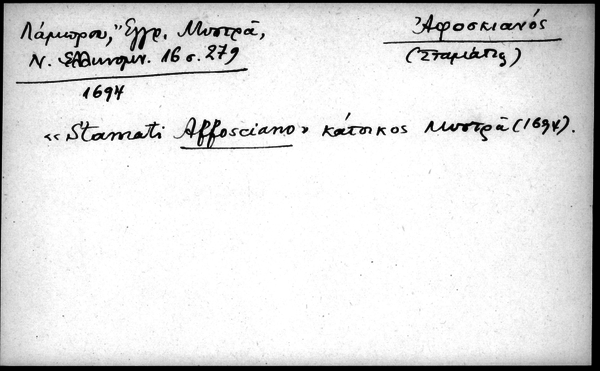 Λάμπρου, "Ἔγγρ. Μυστρᾶ,
Ν. Ἑλληνομν. 16 σ. 279
1694
Ἀφοσκιανός
(Σταμάτης)
«Stamati Affosciano» κάτοικος Μυστρᾶ (1694).